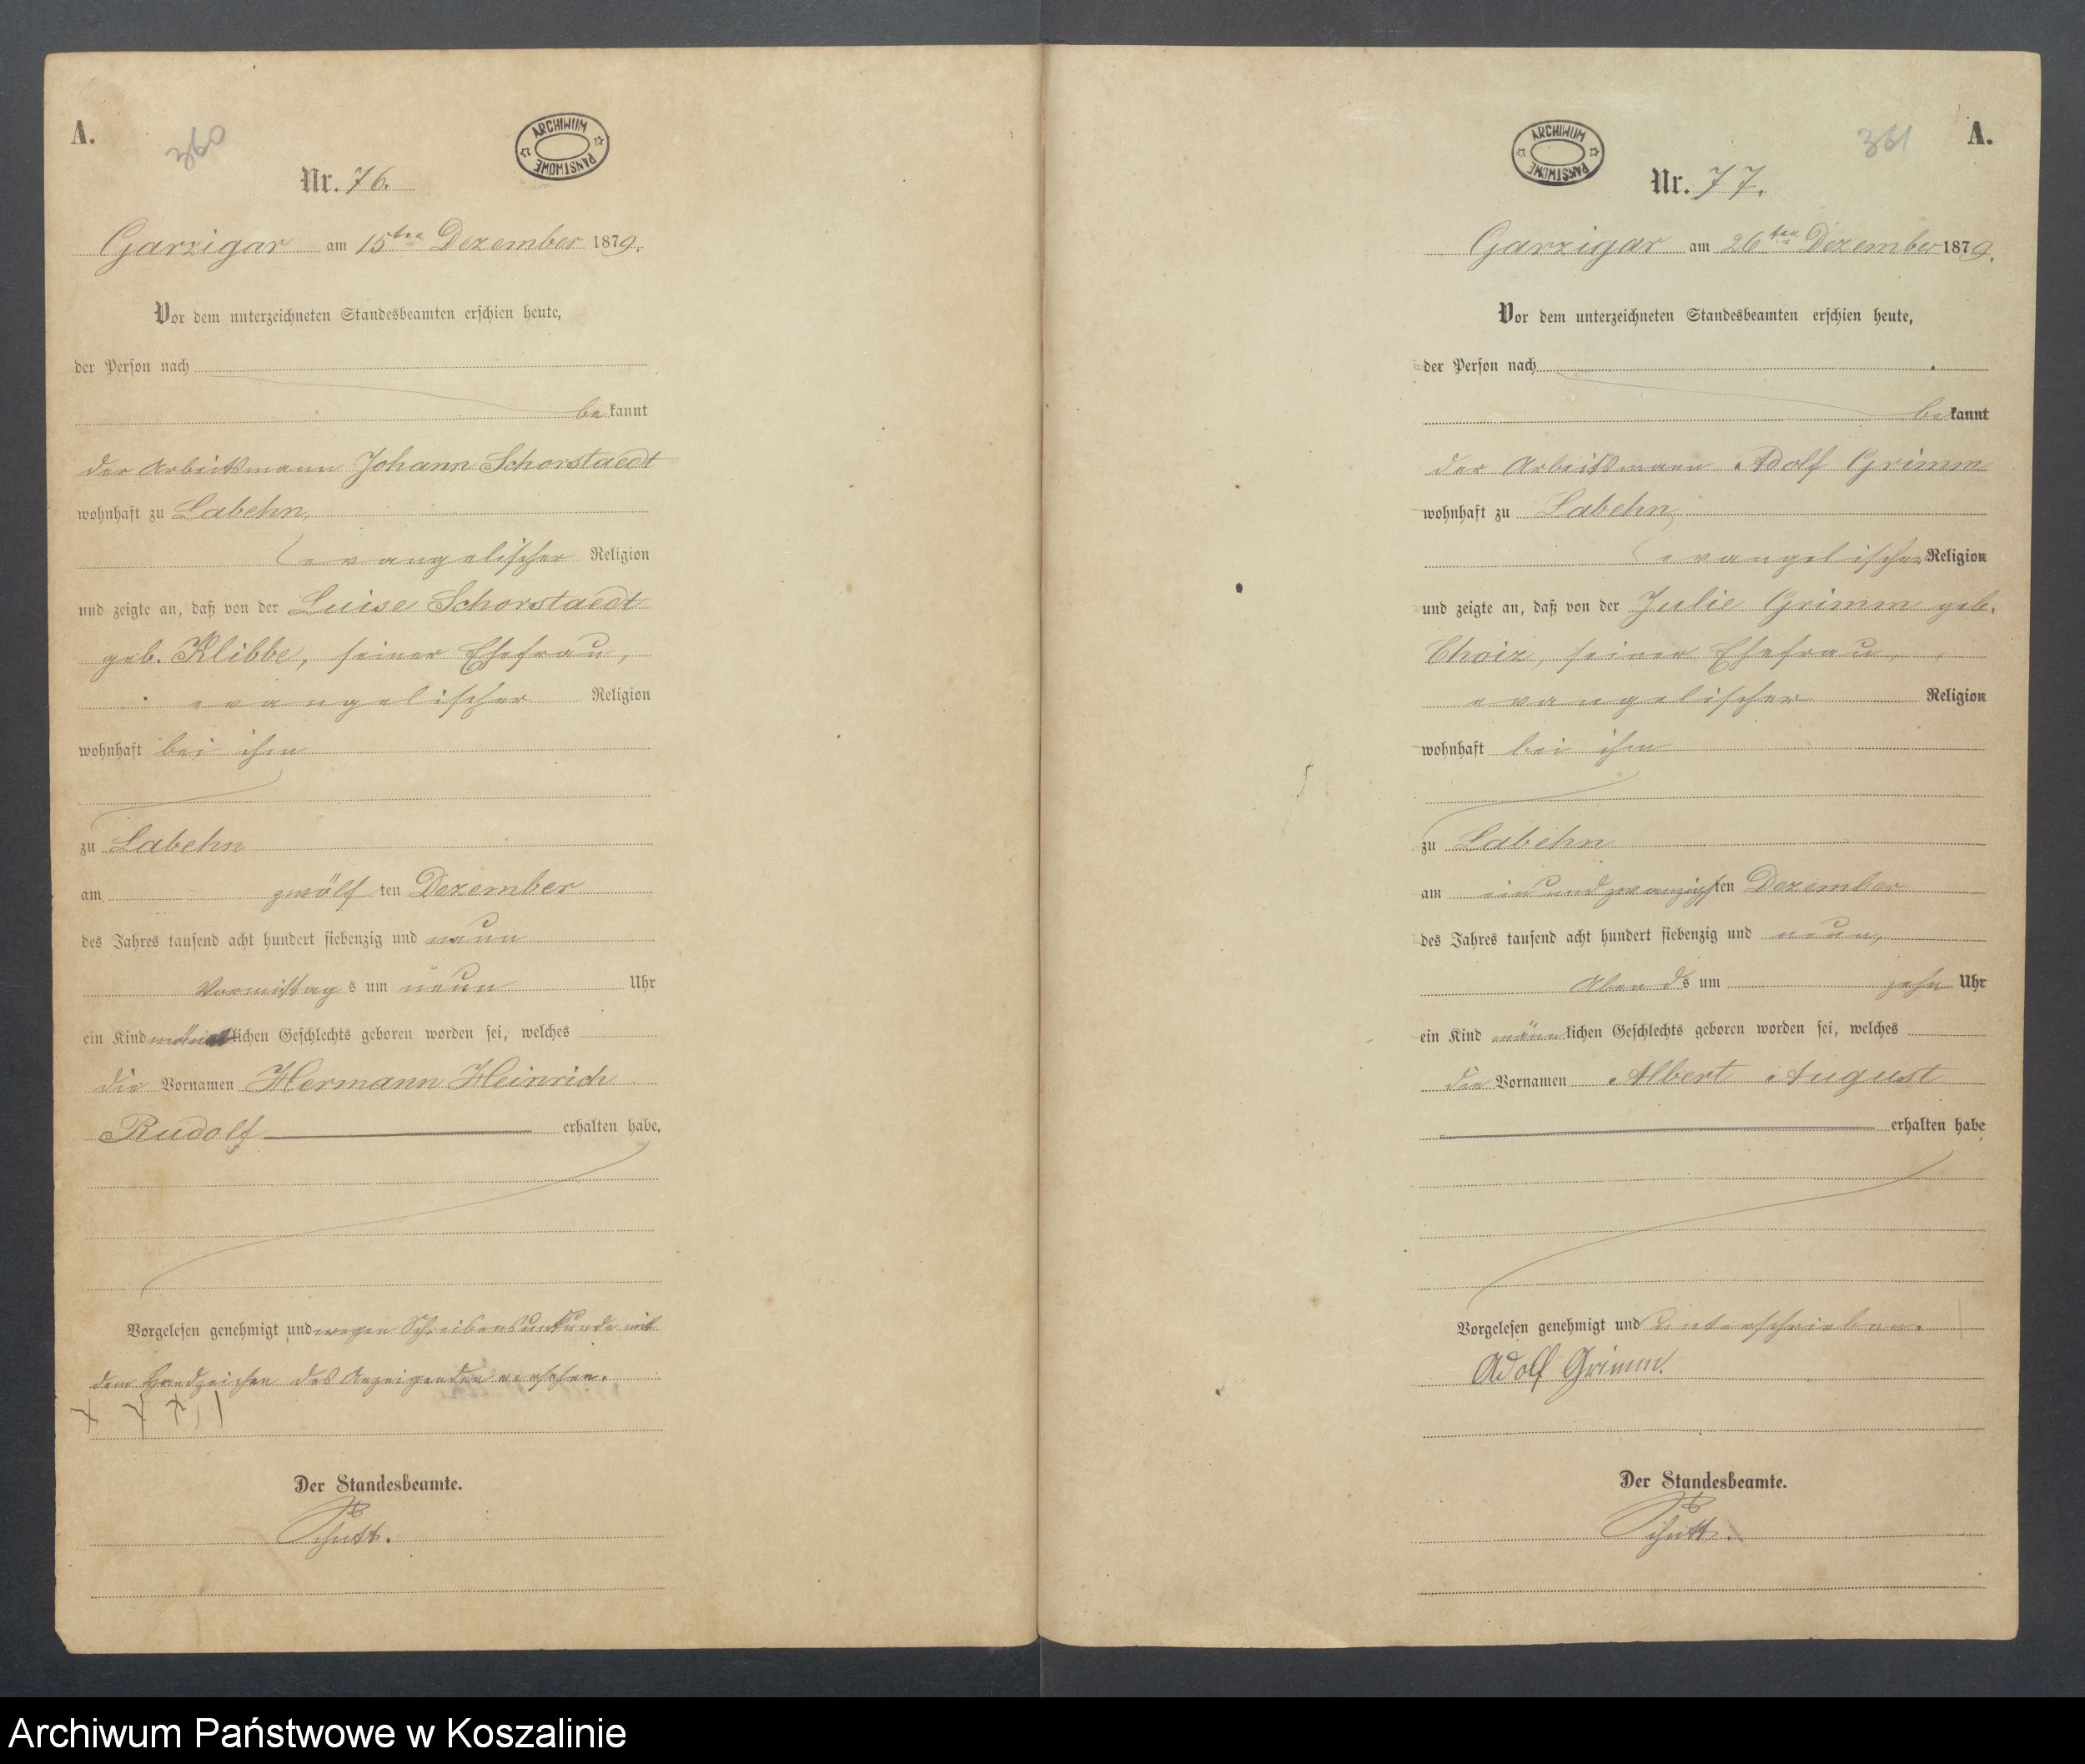 A.
360
ARCHIWUM PAŃSTWOWE
Nr. 76.
Garzigar am 15ten Dezember 1879.
Vor dem unterzeichneten Standesbeamten erschien heute,
der Person nach
bekannt
der Arbeitsmann Johann Schorstaedt
wohnhaft zu Labehn,
evangelischer Religion
und zeigte an, daß von der Luise Schorstaedt
geb. Klibbe, seiner Ehefrau,
evangelischer Religion
wohnhaft bei ihm
zu Labehn
am zwölf ten Dezember
des Jahres tausend acht hundert siebenzig und neun
Vormittag s um neun Uhr
ein Kind männlichen Geschlechts geboren worden sei, welches
die Vornamen Hermann Heinrich
Rudolf erhalten habe,
Vorgelesen genehmigt und wegen Schreibensunkunde mit
dem Handzeichen des Anzeigenden versehen.
Der Standesbeamte.
Schütt.
361
A.
ARCHIWUM PAŃSTWOWE
Nr. 77.
Garzigar am 26ten Dezember 1879.
Vor dem unterzeichneten Standesbeamten erschien heute,
der Person nach
bekannt
der Arbeitsmann Adolf Grimm
wohnhaft zu Labehn,
evangelischer Religion
und zeigte an, daß von der Julie Grimm geb.
Choiz, seiner Ehefrau,
evangelischer Religion
wohnhaft bei ihm
zu Labehn
am ein und zwanzigsten Dezember
des Jahres tausend acht hundert siebenzig und neun,
Abends um zehn Uhr
ein Kind männlichen Geschlechts geboren worden sei, welches
die Vornamen Albert August
erhalten habe
Vorgelesen genehmigt und unterschrieben.
Adolf Grimm.
Der Standesbeamte.
Schütt.
Archiwum Państwowe w Koszalinie